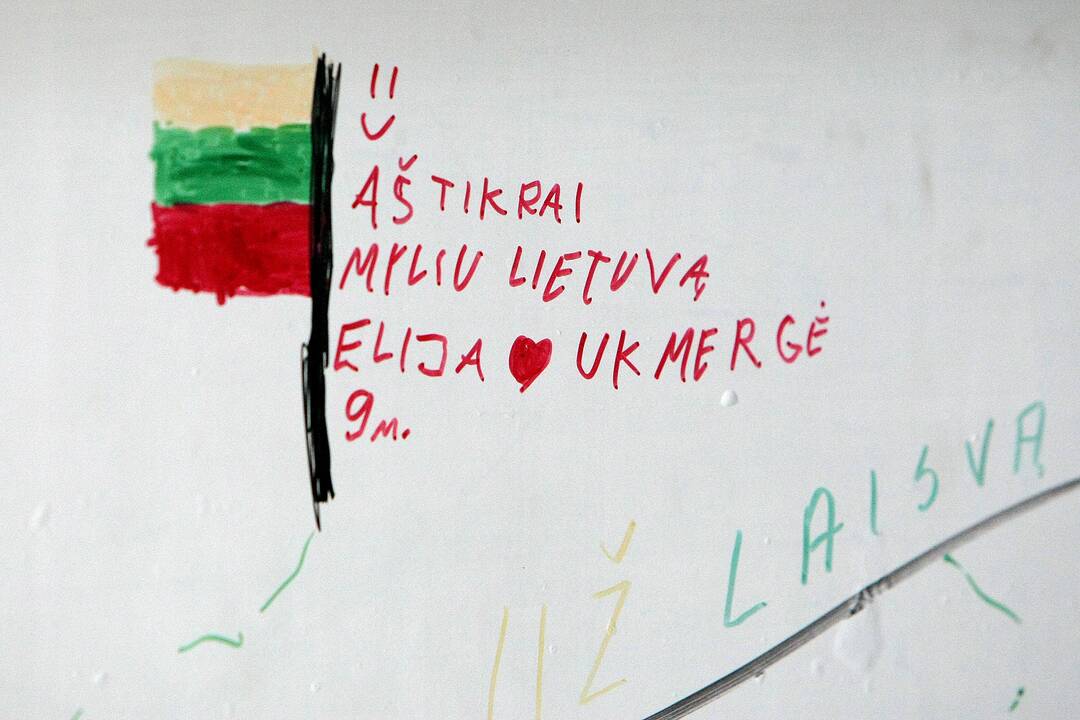 AŠ TIKRAI
MYLIU LIETUVĄ
ELIJA ♥ UKMERGĖ
9m.
UŽ LAISVĄ